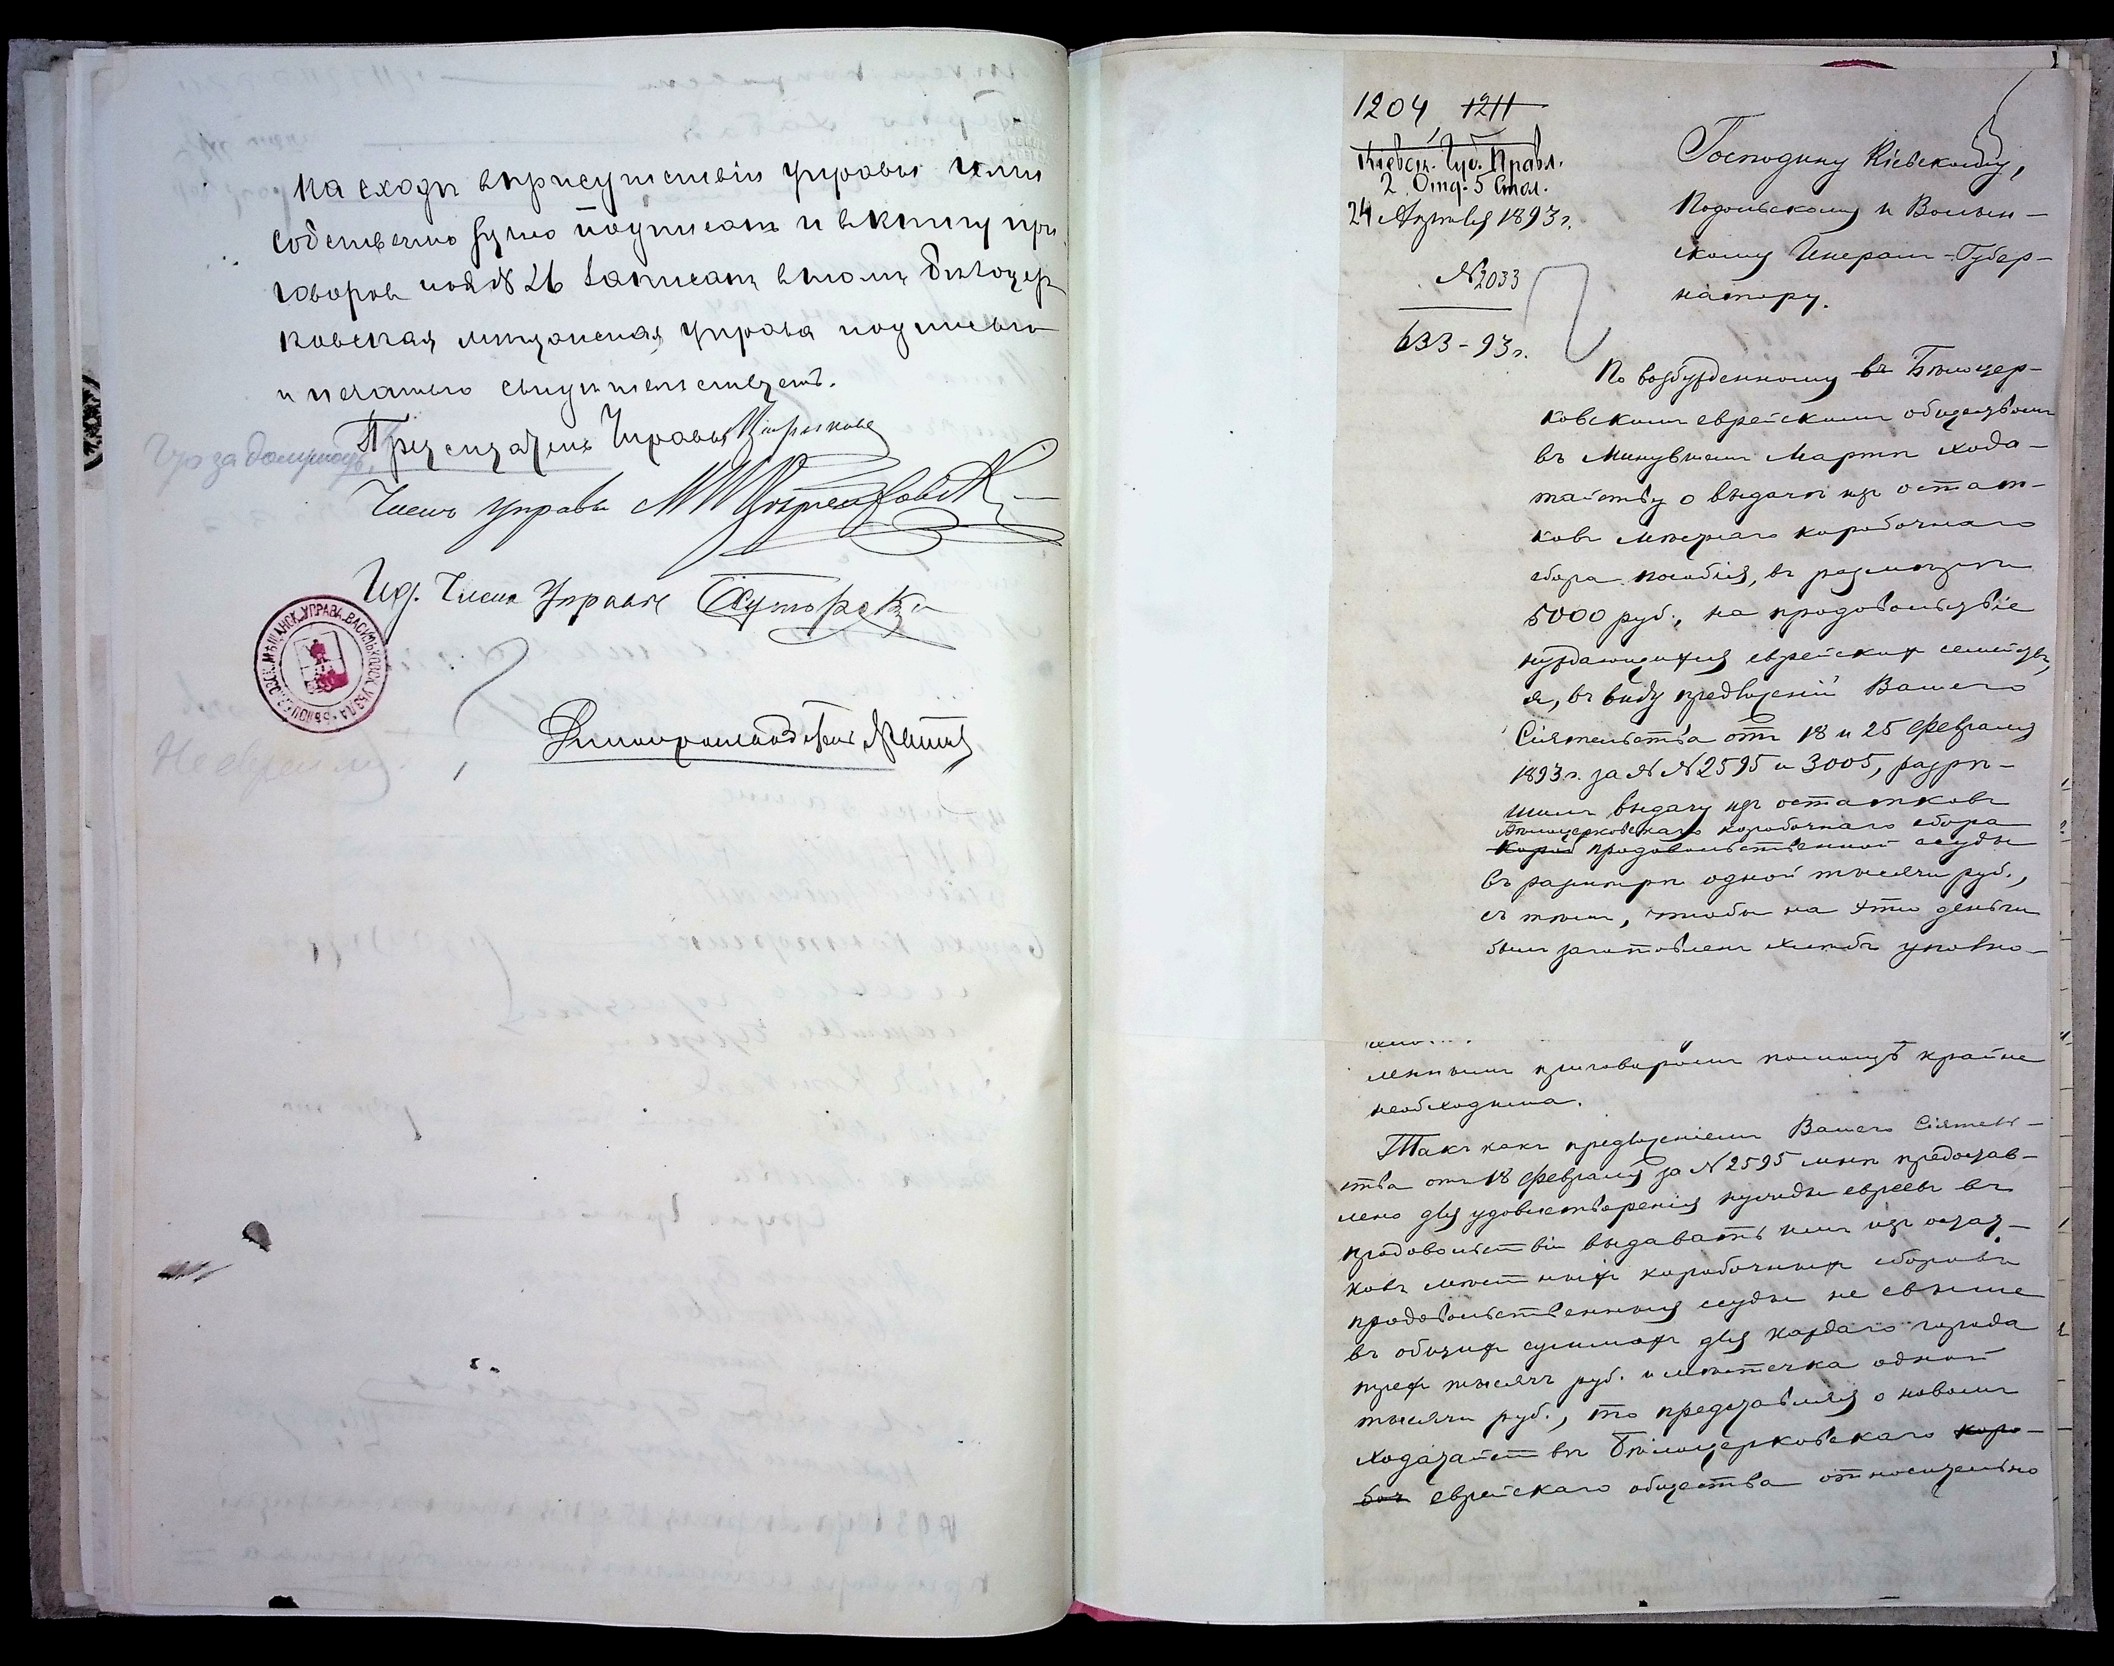 на сходѣ въ присутствіи управы ими
собственно ручно подписанъ и въ книгу при
говоровъ подъ № 26 записанъ въ томъ Бѣлоцер
ковская мѣщанская управа подписью
и печатью свидѣтельствуетъ.
Предсѣдатель Управы
Что за должность
Членъ управы
Ид. Члена Управы
БѢЛОЦЕРКОВСК. МѢЩАНСК. УПРАВА ВАСИЛЬКОВСК. УѢЗДА
Дѣлопроизводитель
Не евреи ли
1204 1211
Кіевск. Губ. Правл.
2 Отд. 5 Стол.
24 Апрѣля 1893 г.
№ 2033
633-93 г.
Господину Кіевскому,
Подольскому и Волын-
скому Генералъ-Губер-
натору.
По возбужденному въ Бѣлоцер-
ковскимъ еврейскимъ обществомъ
въ минувшемъ Мартѣ хода-
тайству о выдачѣ изъ остат-
ковъ мѣстнаго коробочнаго
сбора пособія, въ размѣрѣ
5000 руб., на продовольствіе
нуждающихся еврейских семействъ,
я, въ виду предложеній Вашего
Сіятельства отъ 18 и 25 февраля
1893 г. за №№ 2595 и 3005, разрѣ-
шилъ выдачу изъ остатковъ
Бѣлоцерковскаго коробочнаго сбора
Короб продовольственной ссуды
въ размѣрѣ одной тысячи руб.,
съ тѣмъ, чтобы на эти деньги
былъ заготовленъ хлѣбъ уполно-
леннымъ приговоромъ помощь крайне
необходима.
Такъ какъ предложеніемъ Вашего Сіятель-
ства отъ 18 февраля за № 2595 мнѣ предостав-
лено для удовлетворенія нужды евреевъ въ
продовольствіи выдавать имъ изъ остат-
ковъ мѣстных коробочных сборовъ
продовольственныя ссуды не свыше
въ общих суммах для каждаго города
трех тысячъ руб. и мѣстечка одной
тысячи руб., то представляя о новомъ
ходатайствѣ Бѣлоцерковскаго коро-
боч еврейскаго общества относительно